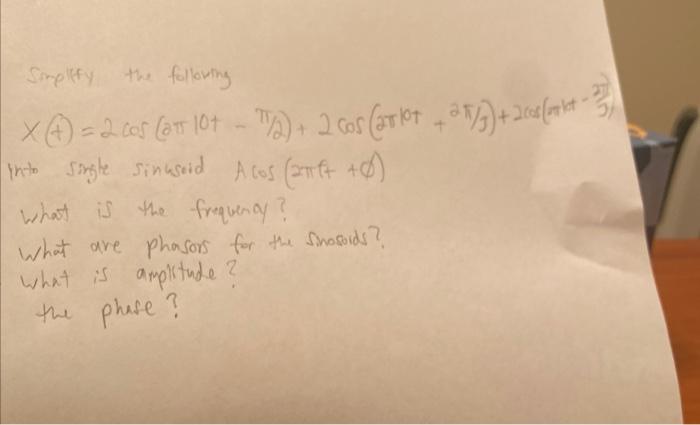 Simplify the following
X(t) = 2 cos (2π 10t - π/2) + 2 cos (2π10t + 2π/3) + 2cos(2π10t - 2π/3)
into single sinusoid A cos (2πft + φ)
what is the frequency?
what are phasors for the sinosoids?
what is amplitude?
the phase?